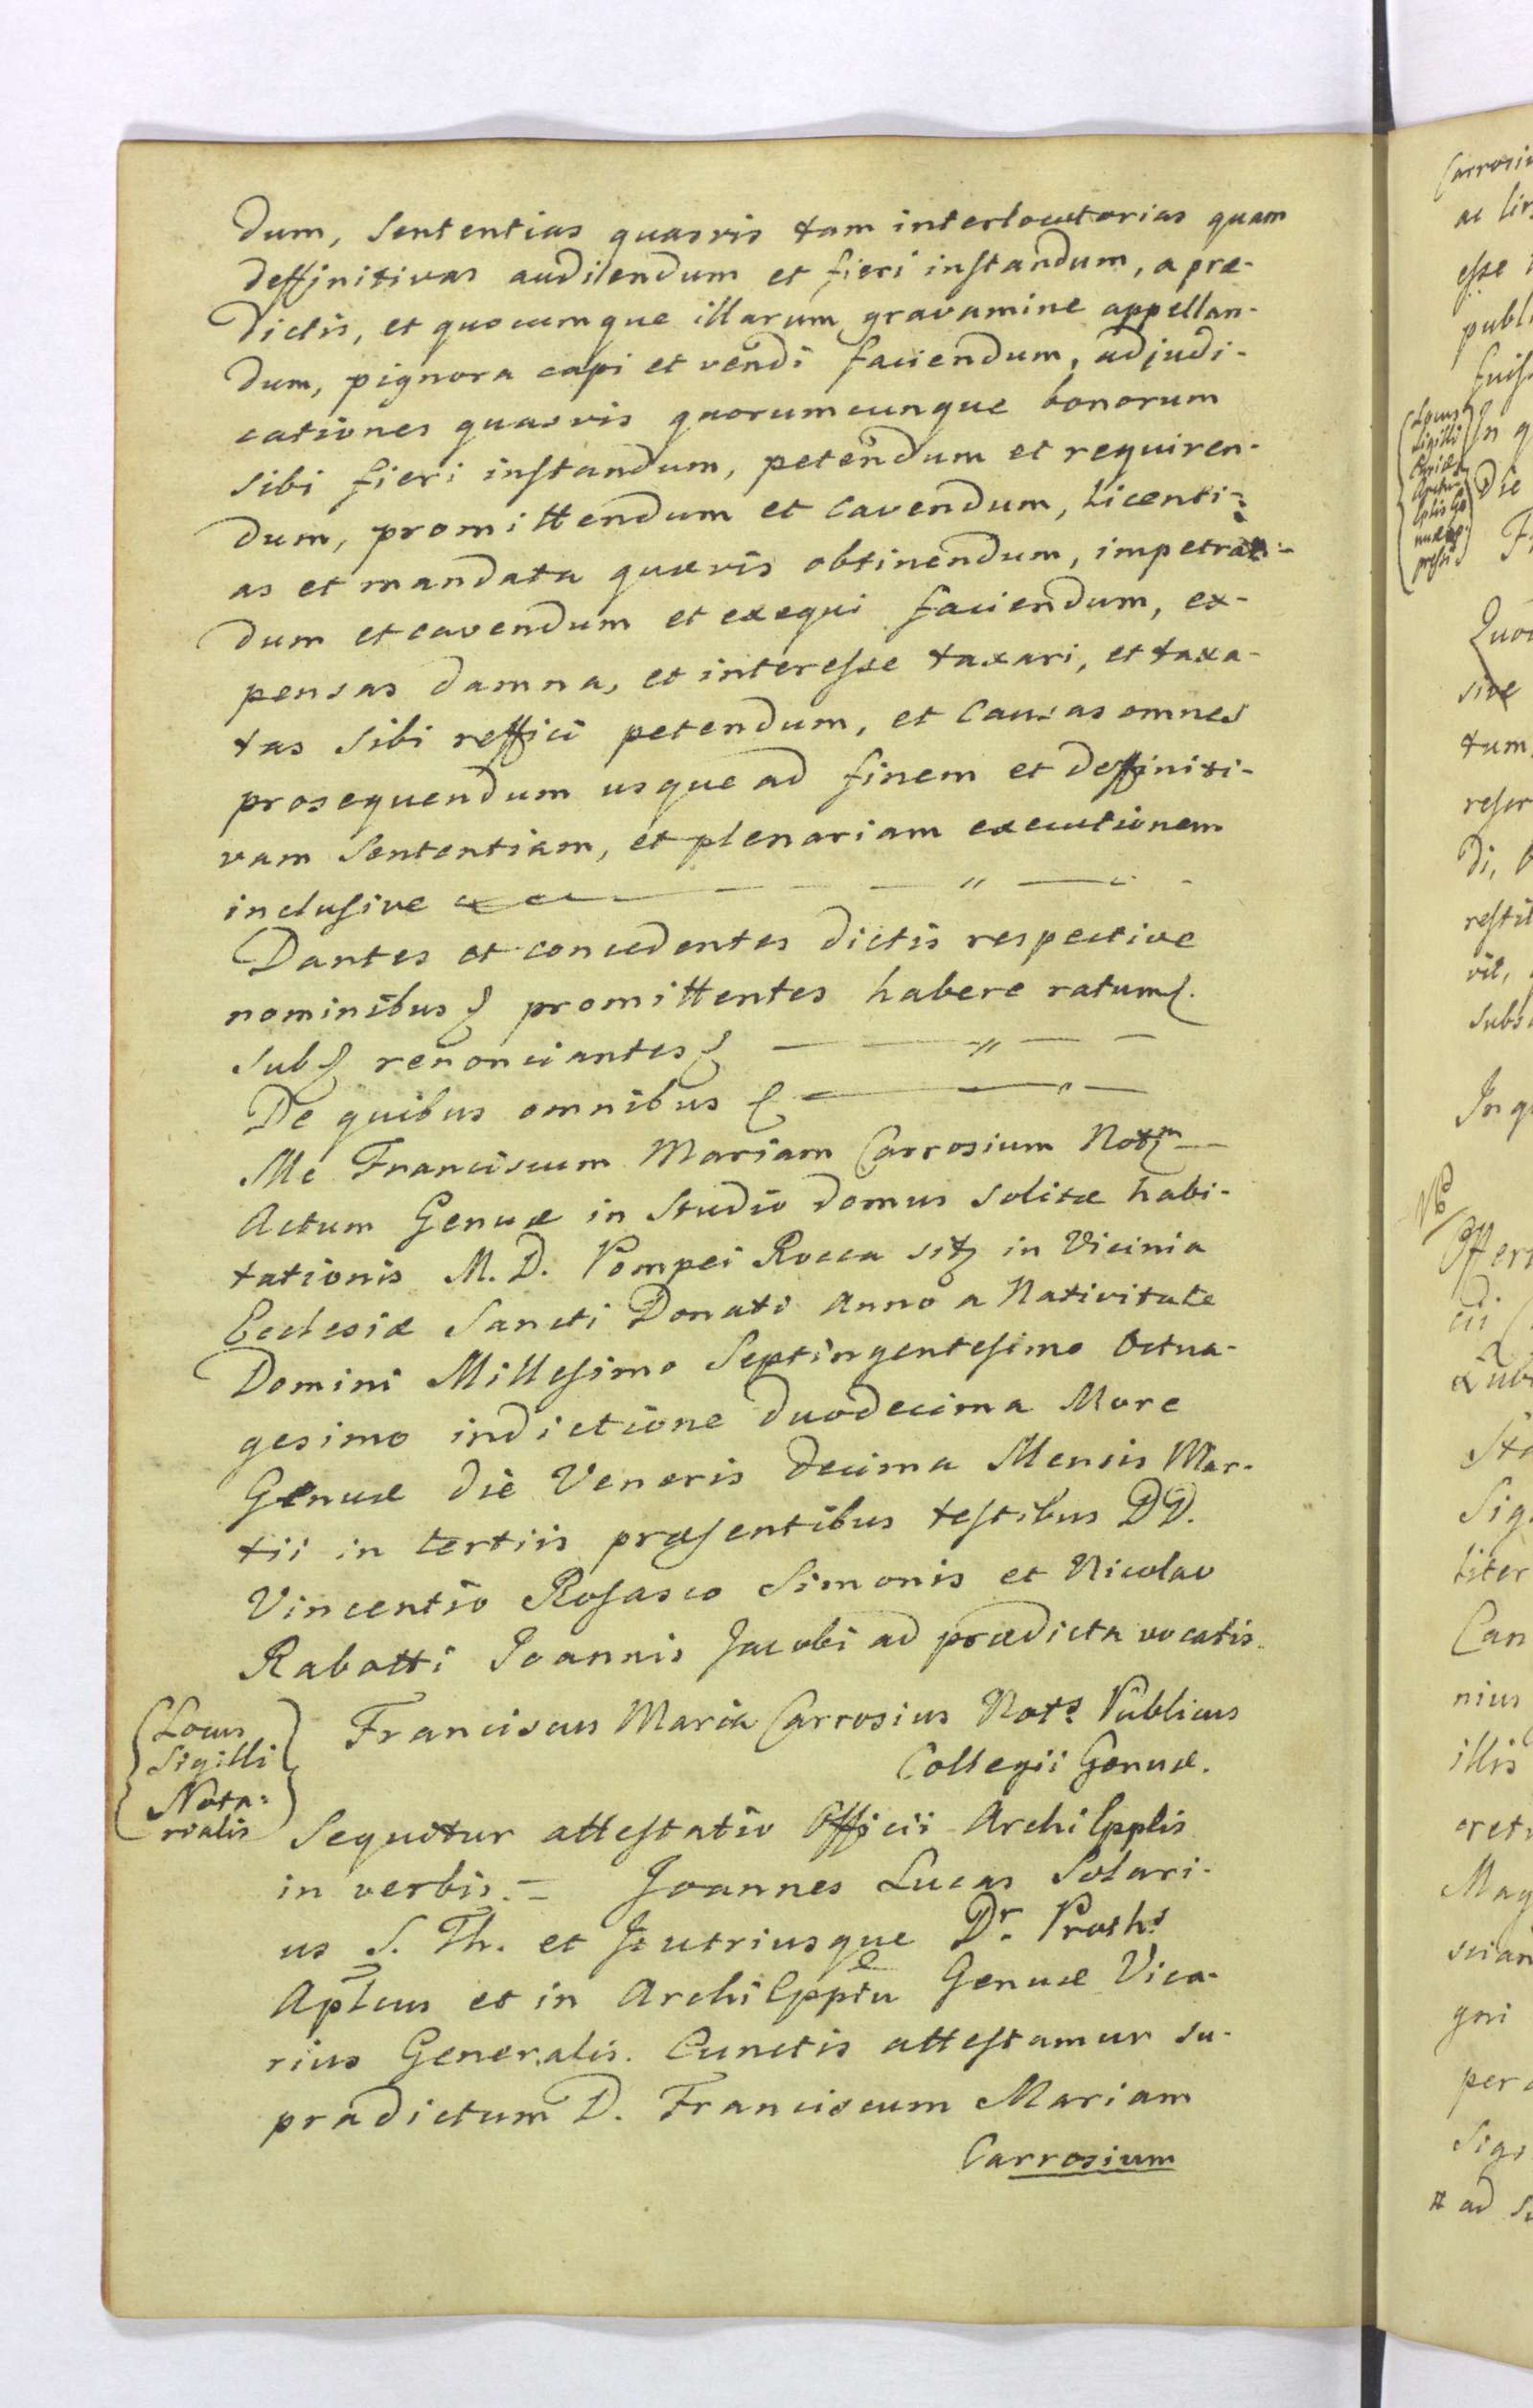 dum, Sententias quasvis tam interlocutorias quam
deffinitivas audiendum et fieri instandum, a præ-
dictis, et quocumque illarum gravamine appellan-
dum, pignora capi et vendi faciendum, adjudi-
cationes quasvis quorumcunque bonorum
sibi fieri instandum, petendum et requiren-
dum, promittendum et cavendum, Licenti-
as et mandata quævis obtinendum, impetran-
dum et cavendum et exequi faciendum, ex-
pensas damna, et interesse taxari, et taxa-
tas sibi reffici petendum, et Causas omnes
prosequendum usque ad finem et deffiniti-
vam Sententiam, et plenariam executionem
inclusive
Dantes et concedentes dictis respective
nominibus promittentes habere ratum
Sub renonciantes
De quibus omnibus
Me Franciscum Mariam Carrosium Not.m
Actum Genuæ in Studio domus Solitæ habi-
tationis M. D. Pompei Rocca sit in Vicinia
Ecclesiæ Sancti Donati Anno a Nativitate
Domini Millesimo Septingentesimo Octua-
gesimo indictione duodecima More
Genuæ die Veneris decima Mensis Mar-
tii in tertiis præsentibus testibus DD.
Vincentio Rosasco Simonis et Nicolao
Rabotti Joannis Jacobi ad prædicta vocatis.
Franciscus Maria Carrosius Not.s Publicus
Collegii Genuæ.
Locus
Sigilli
Nota-
rialis
Sequitur attestatio Officii Archilpplis
in verbis. = Joannes Lucas Solari-
us S. Th. et J. utriusque Dr. Proth.s
Aplcus et in Archilpptu Genuæ Vica-
rius Generalis. Cunctis attestamur su-
pradictum D. Franciscum Mariam
Carrosium
Carrosiu
ac
esse
publ
Locus
Sigilli
In q
Die
Quo
sive
tum
reser
di,
restit
vit,
Subs
In q
Offer
cii
Sig
liter
Can
nius
illis
Mag
scian
gni
per
Sig
ad